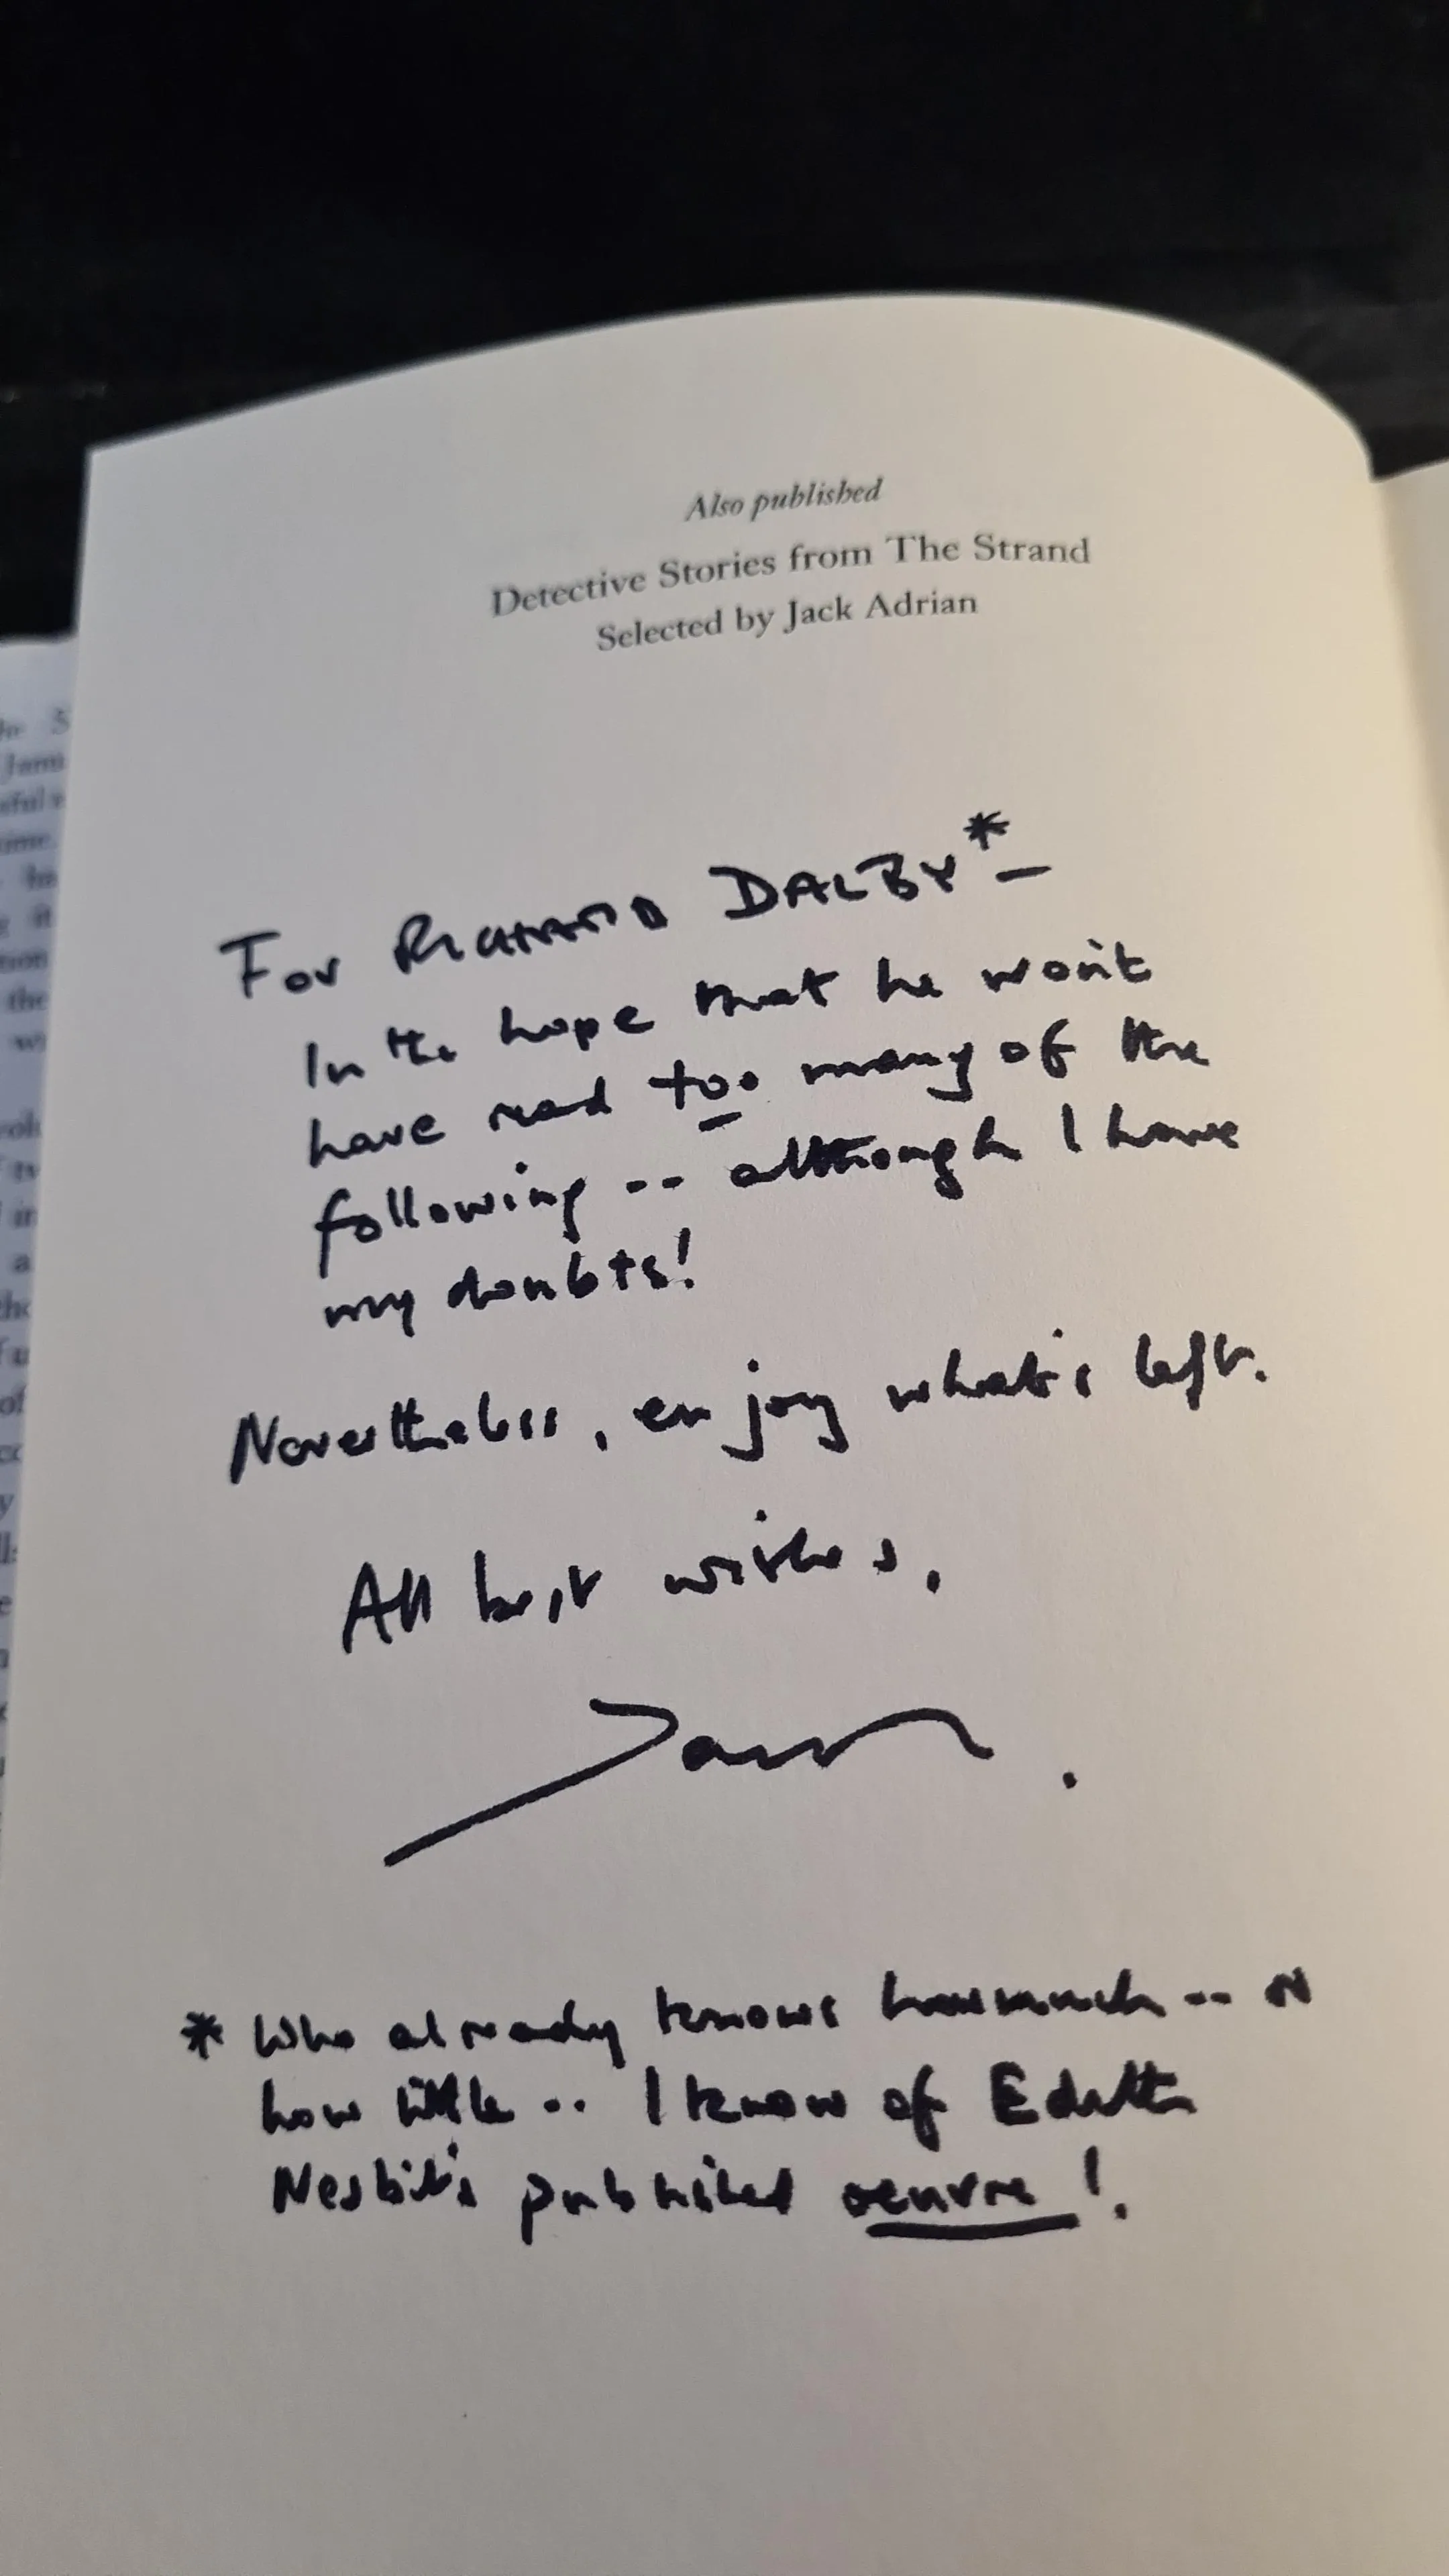 Also published
Detective Stories from The Strand
Selected by Jack Adrian
For RICHARD DALBY* –
In the hope that he won't
have read too many of the
following -- although I have
my doubts!
Nevertheless, enjoy what's left.
All best wishes,
Jack.
* Who already knows how much -- or
how little -- I know of Edith
Nesbit's published oeuvre!.